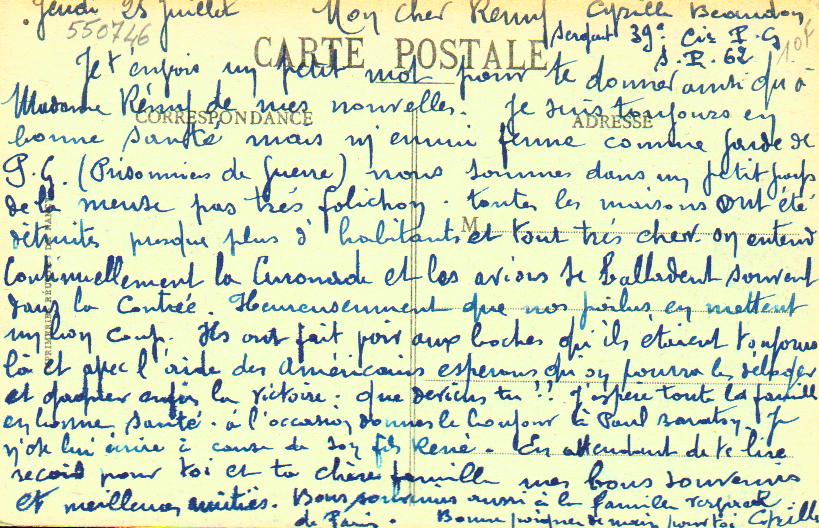 Jeudi 25 Juillet Mon cher Rémy Cyrille Beaudoin
550746
Sergent 39e Cie P.G
S.P. 62
10F
CARTE POSTALE
Je t'envois un petit mot pour te donner ainsi qu'à
Madame Rémy de mes nouvelles. Je suis toujours en
CORRESPONDANCE
ADRESSE
bonne santé mais m'ennui ferme comme garde de
P.G. (Prisonniers de Guerre) nous sommes dans un petit pays
de la meuse pas très folichon. toutes les maisons ont été
M
détruites presque plus d'habitants et tout très cher. on entend
Continuellement la Canonade et les avions se balladent souvent
dans la Contrée. Heureusement que nos poilus en mettent
un bon coup. Ils ont fait voir aux boches qu'ils étaient toujours
là et avec l'aide des Américains esperons qu'on pourra les déloger
et gagner enfin la victoire. que deviens tu!! J'espère toute la famille
en bonne santé. à l'occasion donnes le bonjour à Paul Je
n'ose lui écrire à cause de son fils René. En attendant de te lire
recois pour toi et ta chère famille mes bons souvenirs
et meilleures amitiés. Bons souvenirs aussi à la famille
de Paris. Bonne poignée de main pour toi Cyrille